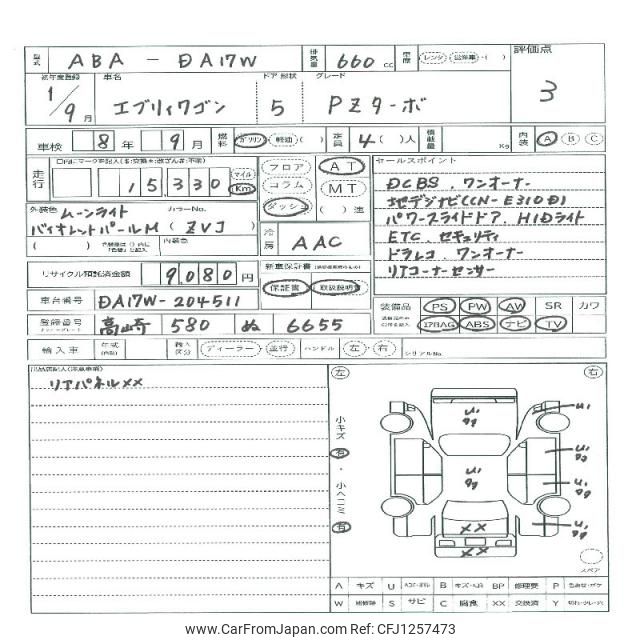 型式 ABA - DA17W 排気量 660 cc 車歴 レンタ ・( ) 評価点
初年度登録 車名 ドア 形状 グレード
1/9月 エブリィワゴン 5 PZターボ 3
車検 8年 9月 燃料 ガソリン 軽油 ( ) 定員 4( )人 積載量 Kg 内装 A B C
走行 15330 マイル Km フロア コラム ダッシュ AT MT ( )速
外装色 ムーンライト カラーNo.
バイオレットパールM ( ZVJ )
( ) 内装色 冷房 AAC
セールスポイント
DCBS、ワンオーナー
地デジナビ(CN-E310D)
パワースライドドア、HIDライト
ETC、セキュリティ
ドラレコ、ワンオーナー
リアコーナーセンサー
リサイクル預託済金額 9080 円 新車保証書 保証書 取扱説明書
車台番号 DA17W-204511
登録番号 高崎 580 ぬ 6655
装備品 PS PW AW SR カワ
エアBAG ABS ナビ TV
輸入車 年式 輸入区分 ディーラー・並行 ハンドル 左・右 シリアルNo.
リアパネルXX
左 右
小キズ 有 ・ 小ヘコミ 有
U1
U1
U1
U1
U1
U1
XX
XX
スペア
A キズ U B BP 修理要 P
W S サビ C 腐食 XX 交換済 Y
www.CarFromJapan.com - CFJ1257473